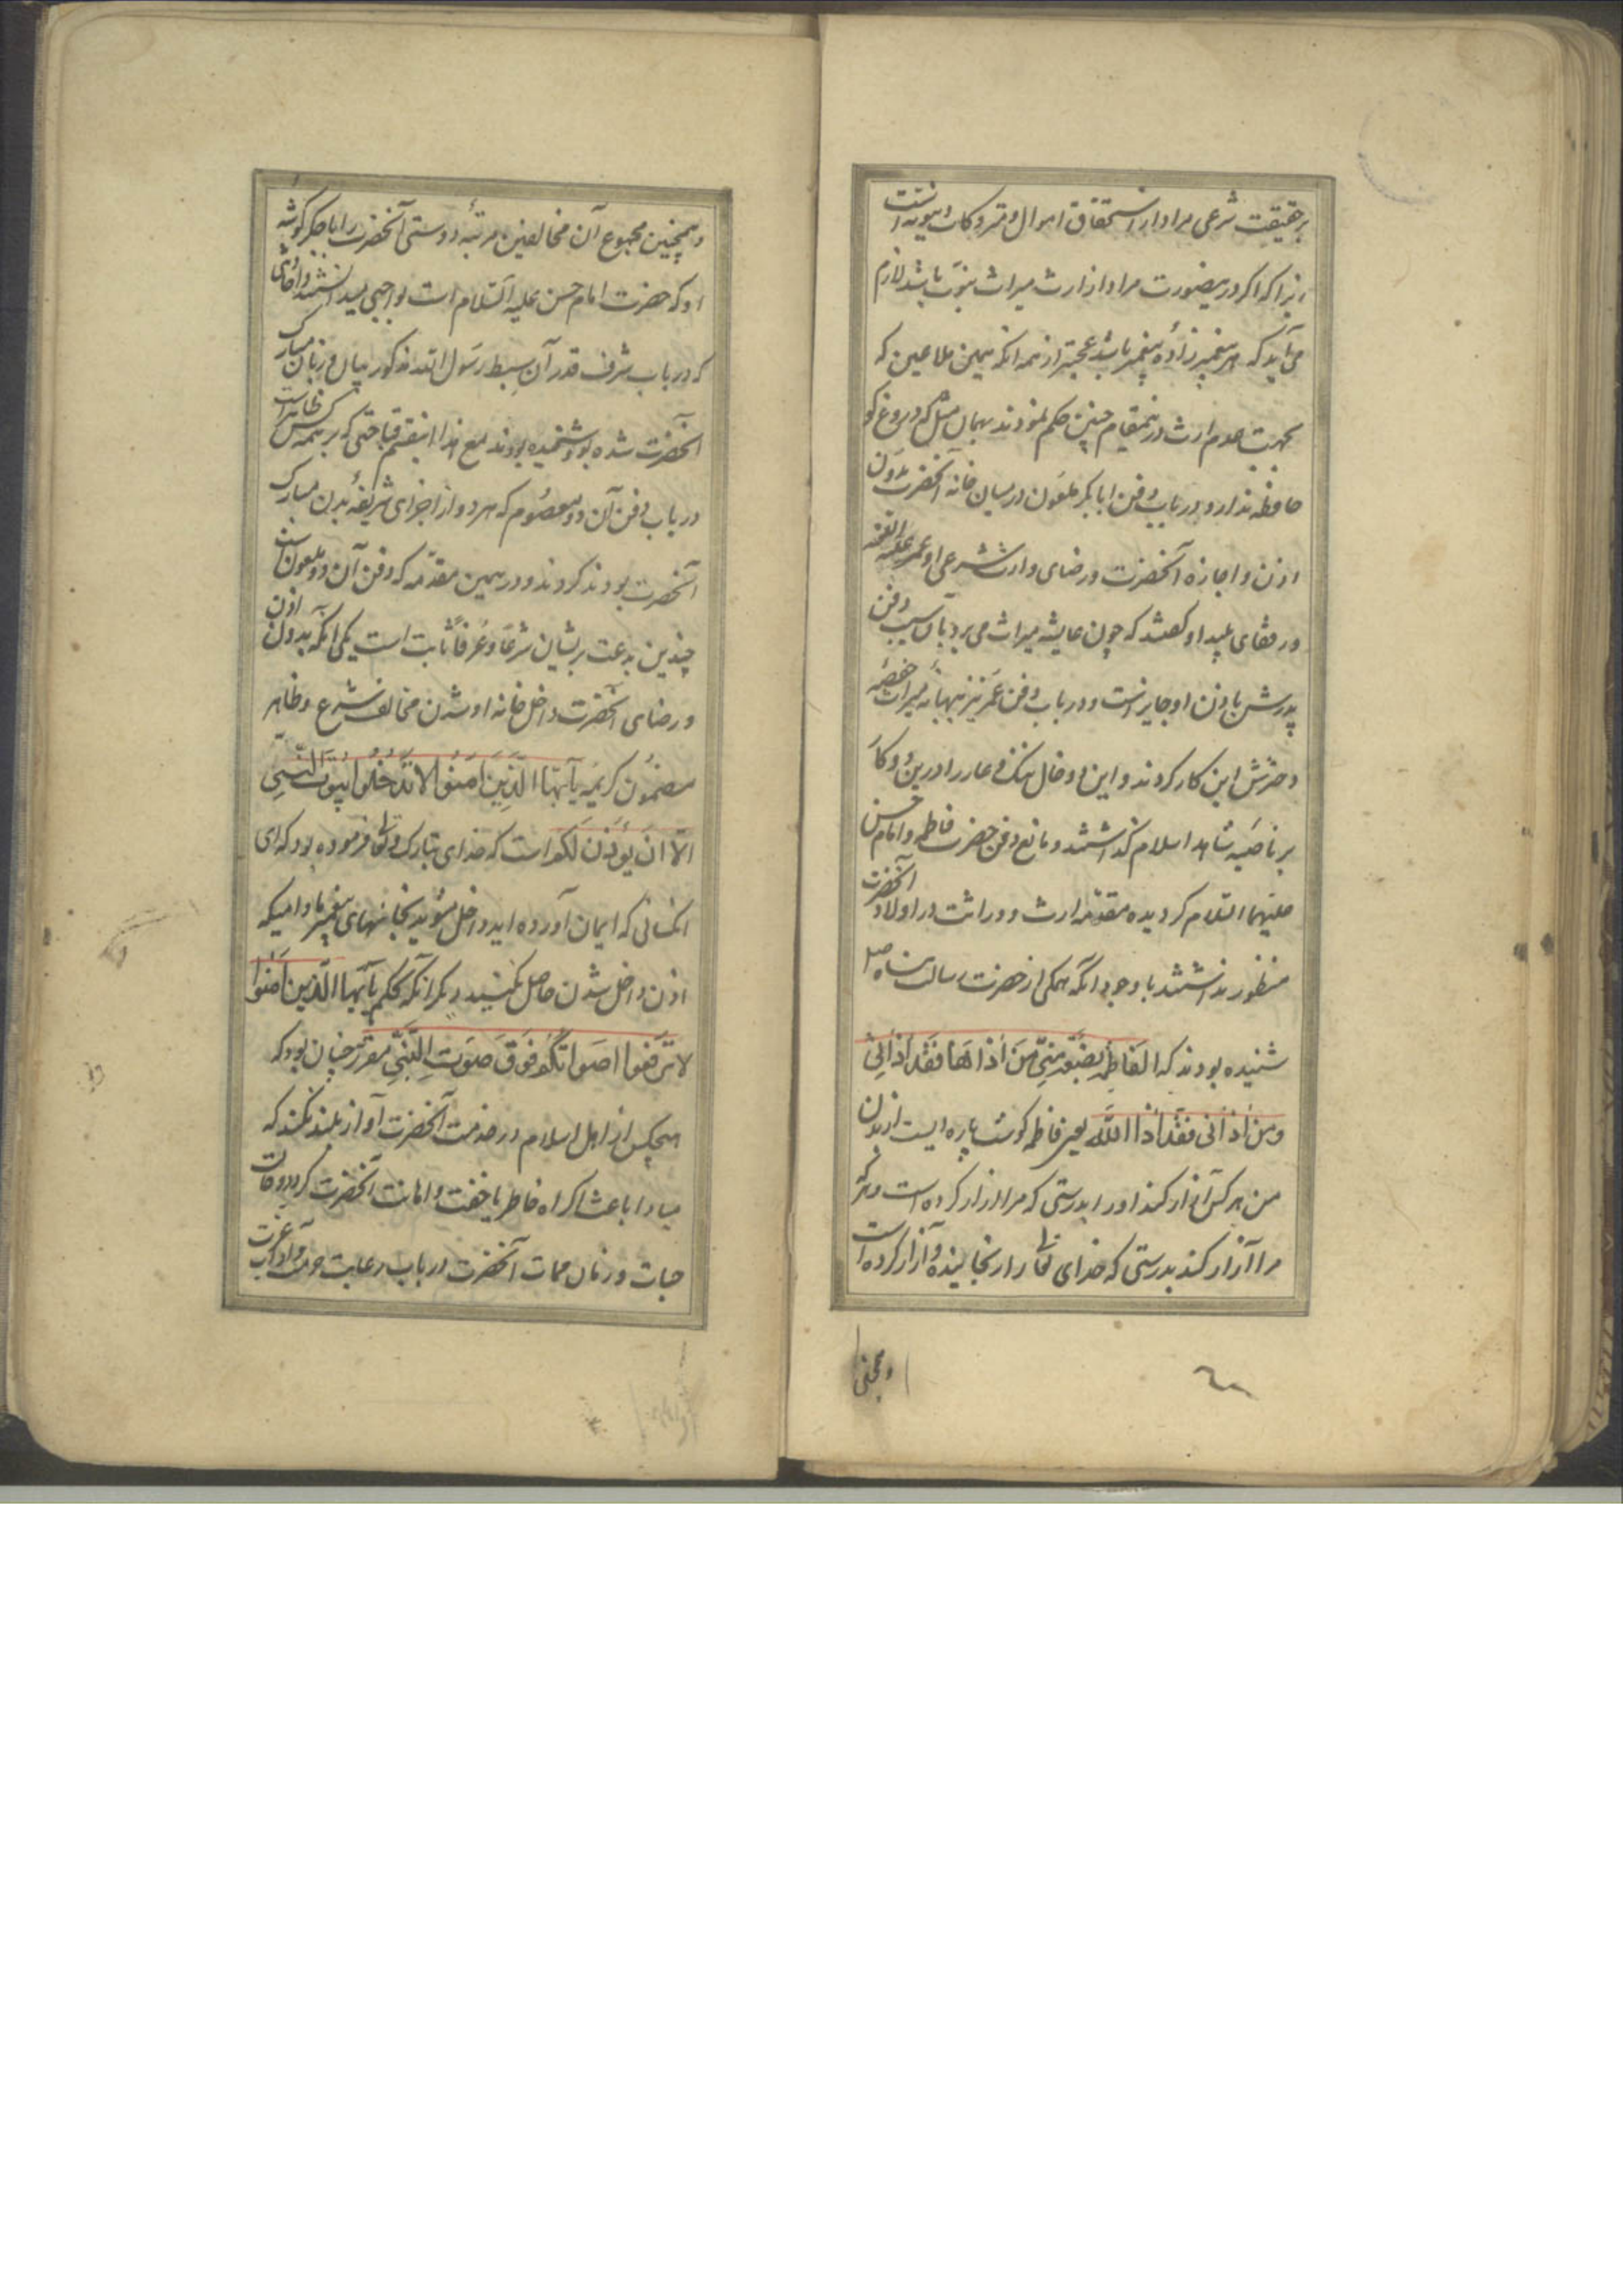 بر حقیقت شرعی مراد از استحقاق اموال و متروکات دنیویه است
زیرا که اگر درینصورت مراد از ارث میراث نبوت باشد لازم
می آید که هر پیغمبرزاده پیغمبر باشد عجبتر از همه آنکه همین ملاعین که
بجهت عدم ارث درینمقام چنین حکم نمودند بهمان مثل که دروغ گو
حافظه ندارد در باب دفن ابابکر ملعون در میان خانه آنحضرت بدون
اذن و اجازه آنحضرت و رضای وارث شرعی او عمر علیه اللعنه
و رفقای پلید او گفتند که چون عایشه میراث می برد بآن سبب دفن
پدرش باذن او جایز است و در باب دفن عمر نیز ببهانه میراث حفصه
دخترش این کار کردند و این
بر ناصیه اسلام گذاشتند و مانع دفن حضرت فاطمه و امام حسن
علیهما السلام گردیده مقدمه ارث و وراثت در اولاد آنحضرت
منظور نداشتند با وجود آنکه همکی از حضرت رسالت پناه صلع
شنیده بودند که الفاطمة بضعة منی من اذاها فقد اذانی
ومن اذانی فقد اذا الله یعنی فاطمه کوشت پاره ایست از بدن
من هر کس آزار کند او را بدرستی که مرا آزار کرده است و هر که
مرا آزار کند بدرستی که خدای تعالی را رنجانیده و آزار کرده است
و همچنین
وهمچنین مجموع آن مخالفین مرتبه دوستی آنحضرت را با جگر گوشه
او که حضرت امام حسن علیه السلام است بواجبی میدانستند و احادیثی
که در باب شرف قدر آن سبط رسول الله مذکور بیان و زبان مبارک
آنحضرت شده بود شنیده بودند مع هذا اینقسم قباحتی که بر همه کس ظاهر است
در باب دفن آن دو معصوم که هر دو از اجزای شریفه بدن مبارک
آنحضرت بودند کردند و در همین مقدمه که دفن آن دو ملعون است
چندین بدعت بریشان شرعا و عرفا ثابت است یکی آنکه بدون اذن
و رضای آنحضرت داخل خانه او شدن مخالف شرع و ظاهر
مضمون کریمه یا ایها الذین امنوا لا تدخلوا بیوت النبی
الا ان یؤذن لکم است که خدای تبارک و تعالی فرموده بود که ای
آنکسانی که ایمان آورده اید داخل مشوید بخانهای پیغمبر مادامیکه
اذن داخل شدن حاصل نکنید دیگر آنکه بحکم یا ایها الذین امنوا
لا ترفعوا اصواتکم فوق صوت النبی مقرر چنان بود که
هیچکس از اهل اسلام در خدمت آنحضرت آواز بلند نکند که
مبادا باعث اکراه خاطر یا خفت و اهانت آنحضرت گردد و
حیات و زمان ممات آنحضرت در باب رعایت حرمت و آداب عزت